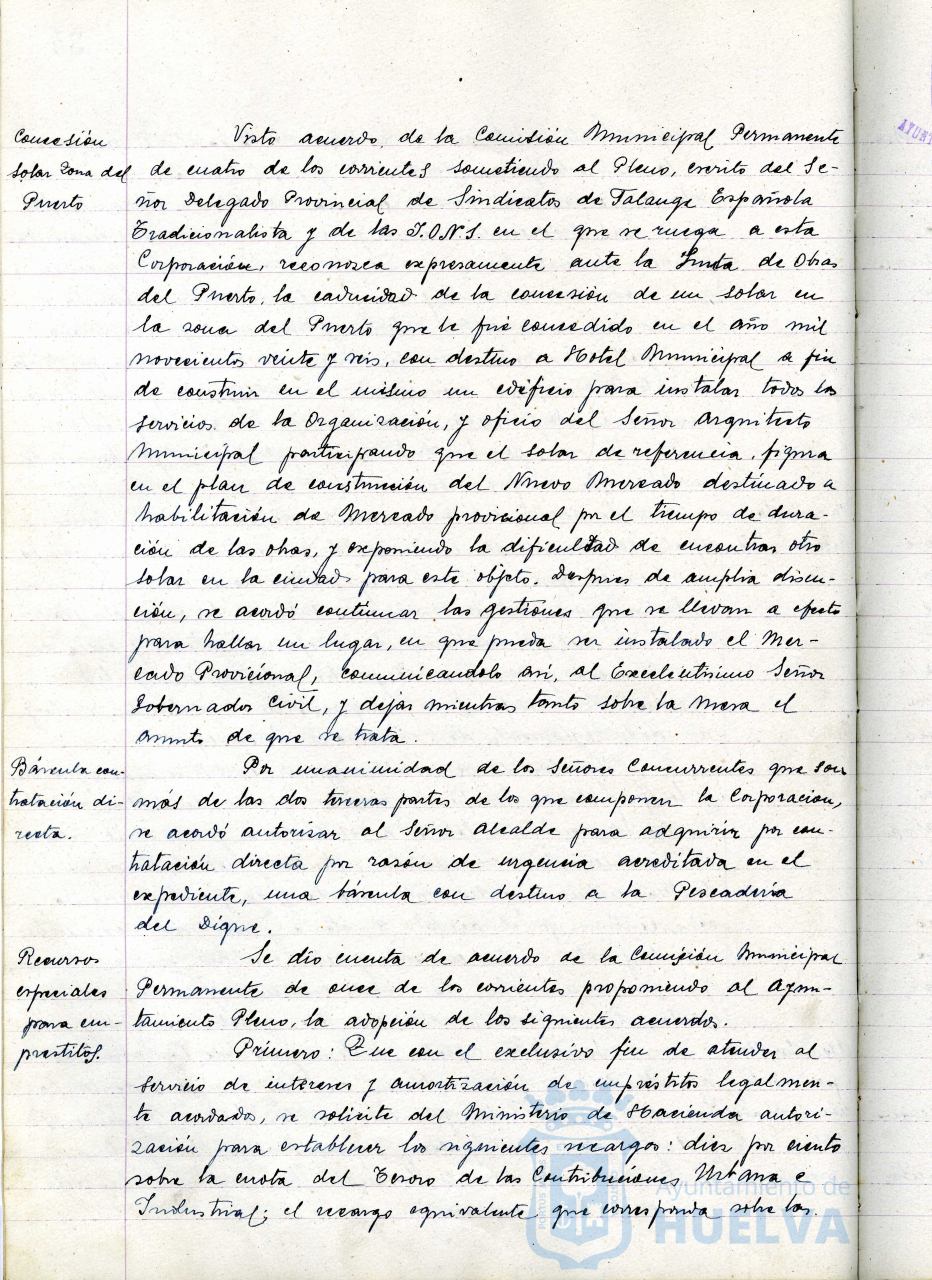 Concesión
solar Zona del
Puerto
Visto acuerdo de la Comisión Municipal Permanente
de cuatro de los corrientes sometiendo al Pleno, escrito del Se-
ñor Delegado Provincial de Sindicatos de Falange Española
Tradicionalista y de las J.O.N.S. en el que se ruega a esta
Corporación, reconozca expresamente ante la Junta de Obras
del Puerto, la caducidad de la concesión de un solar en
la zona del Puerto que le fué concedido en el año mil
novecientos veinte y seis, con destino a Hotel Municipal a fin
de construir en el mismo un edificio para instalar todos los
servicios de la Organización, y oficio del Señor Arquitecto
Municipal participando que el solar de referencia, figura
en el plan de construcción del Nuevo Mercado destinado a
habilitación de Mercado provisional por el tiempo de dura-
ción de las obras, y exponiendo la dificultad de encontrar otro
solar en la ciudad para este objeto. Despues de amplia discu-
ción, se acordó continuar las gestiones que se llevan a efecto
para hallar un lugar, en que pueda ser instalado el Mer-
cado Provicional, comunicandolo así, al Excelentísimo Señor
Gobernador Civil, y dejar mientras tanto sobre la mesa el
asunto de que se trata.
Báscula con-
tratación di-
recta.
Por unanimidad de los Señores Concurrentes que son
más de las dos terceras partes de los que componen la Corporación,
se acordó autorizar al Señor Alcalde para adquirir por con-
tratación directa por razón de urgencia acreditada en el
expediente, una báscula con destino a la Pescadería
del Dique.
Recursos
especiales
para em-
prestitos.
Se dio cuenta de acuerdo de la Comisión Municipal
Permanente de once de los corrientes proponiendo al Ayun-
tamiento Pleno, la adopción de los siguientes acuerdos.
Primero: Que con el exclusivo fin de atender al
servicio de intereses y amortización de empréstitos legalmen-
te acordados, se solicite del Ministerio de Hacienda autori-
zación para establecer los siguientes recargos: diez por ciento
sobre la cuota del Tesoro de las Contribuciones Urbana e
Industrial; el recargo equivalente que corresponda sobre las
Ayuntamiento de
HUELVA
AYUNT